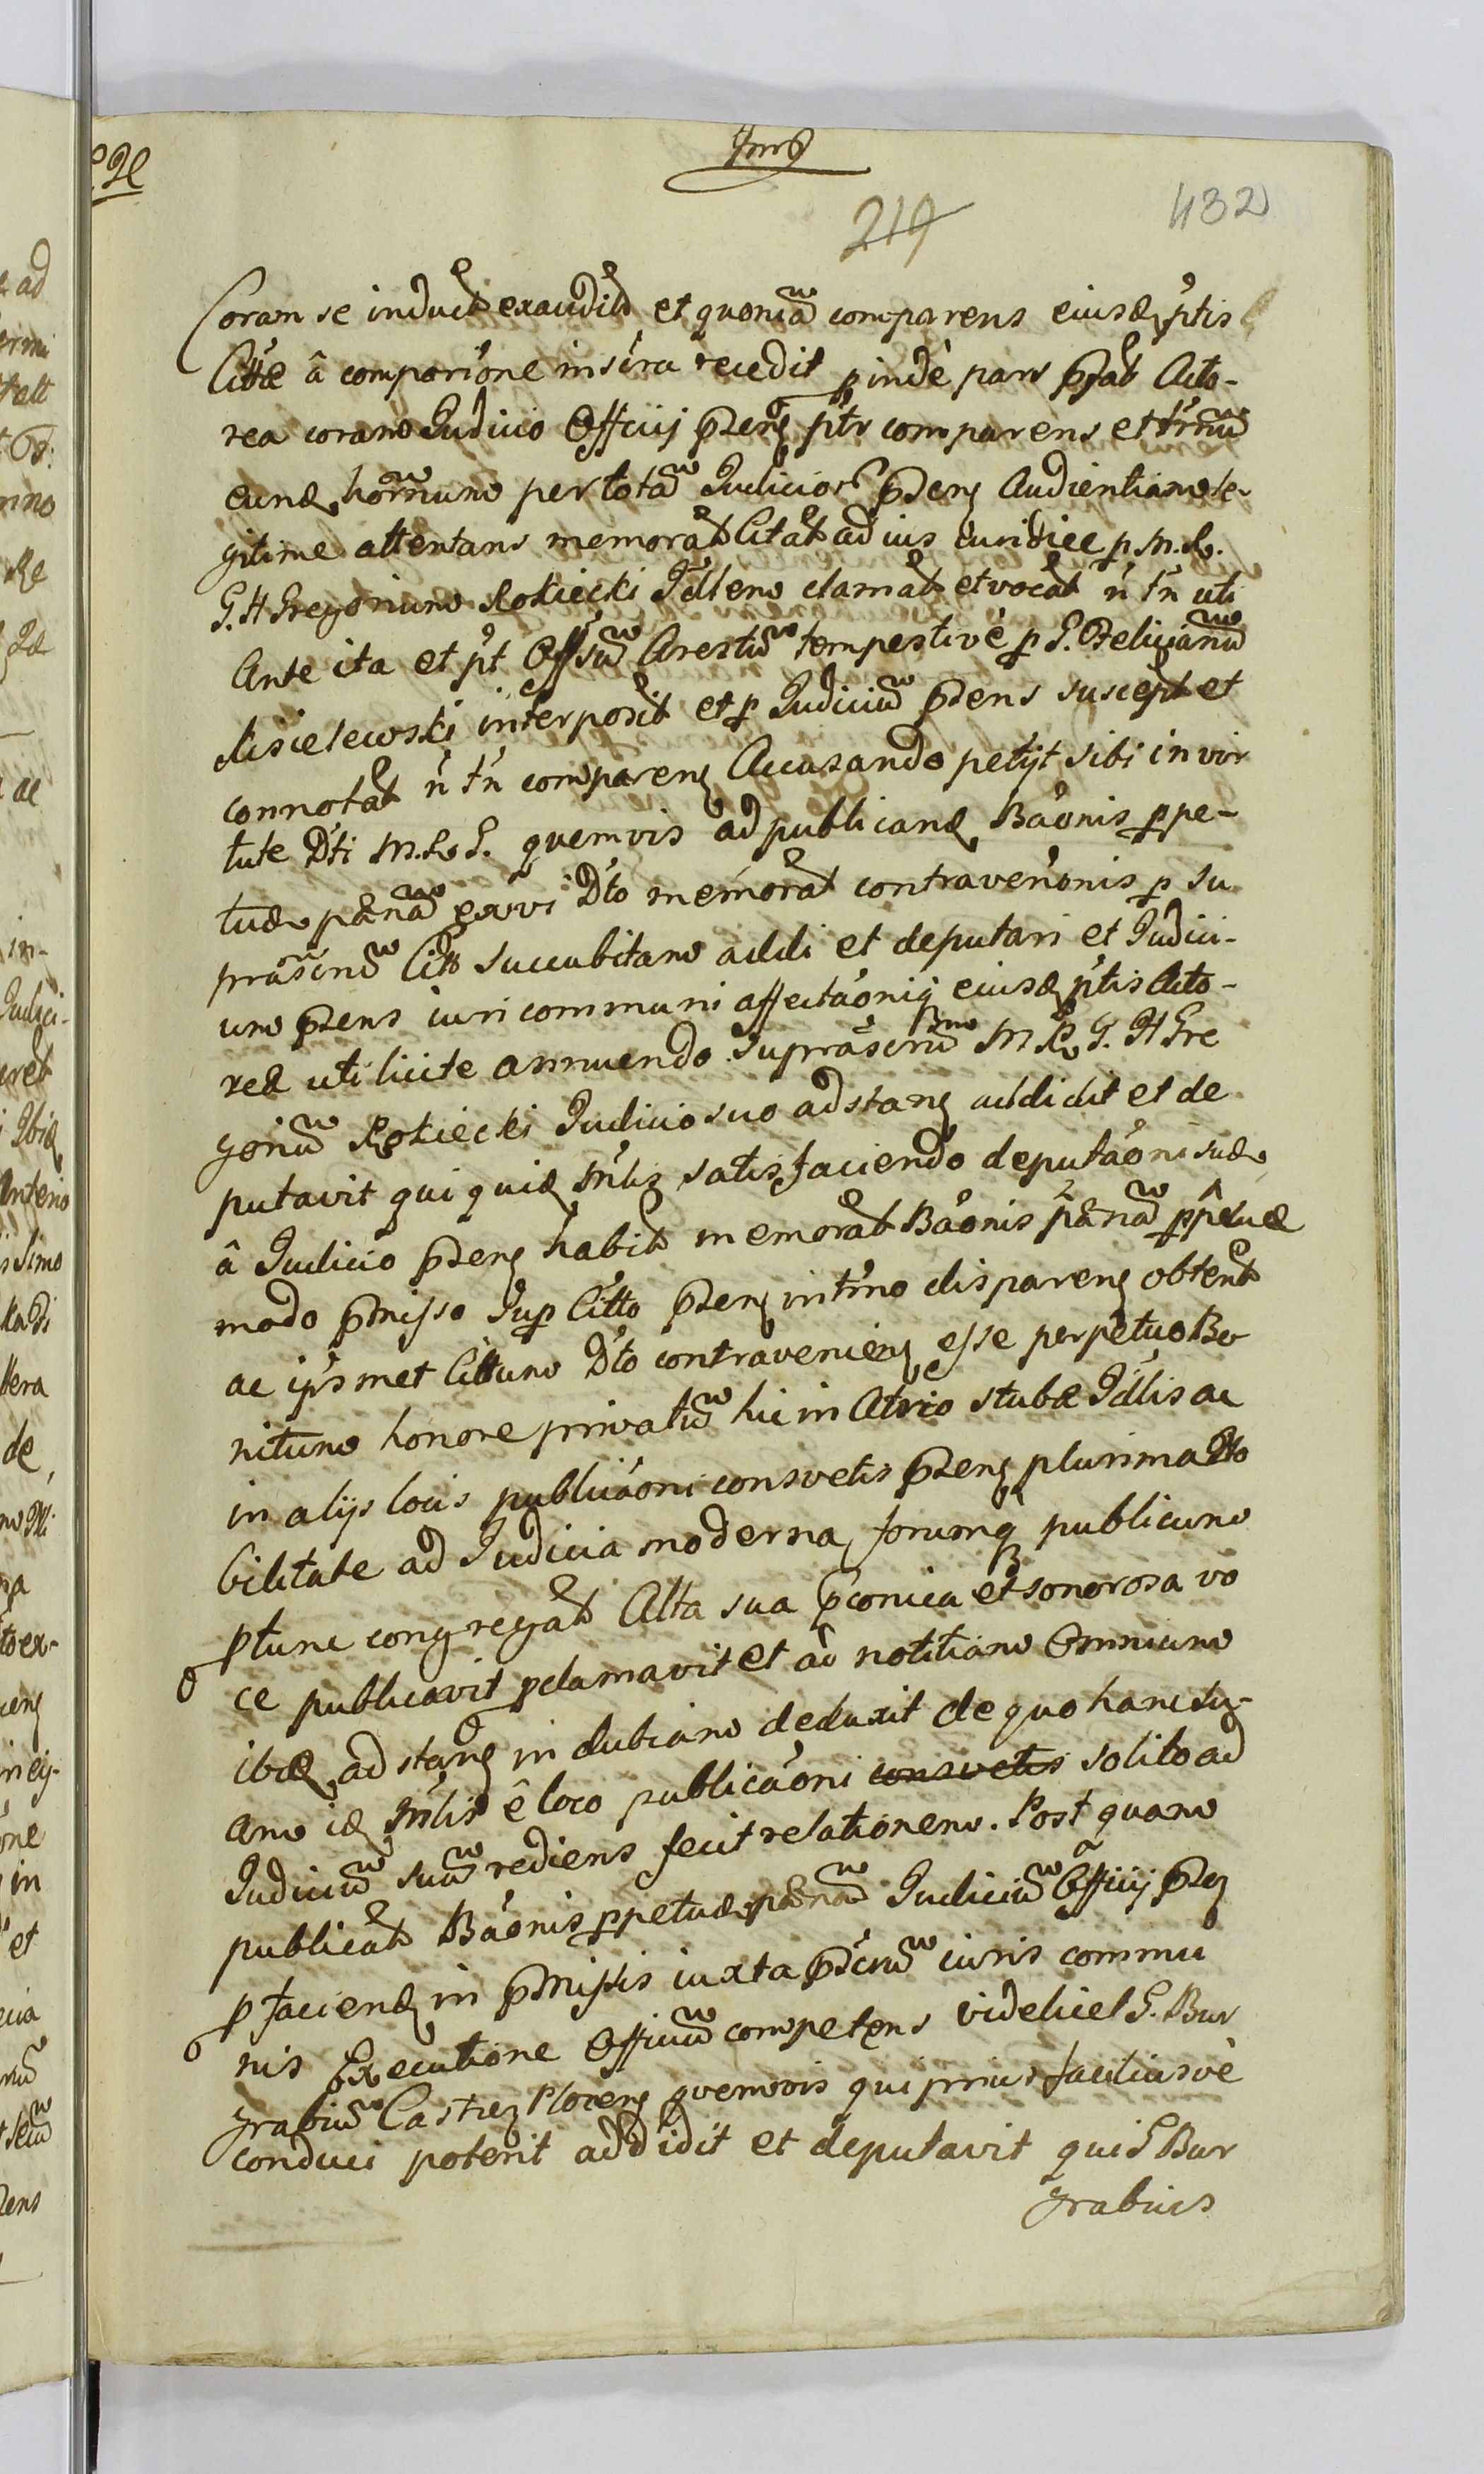 219
432
Coram se induct exaudit et quoniã comparens eiusd ptis
Cittae â comparióne in sóra recedit p indè pars pfat Acto-
rea coram Judicio Officij pzens ptr comparens et trnũ
eund hornum per totã Judicior pzens Audientiam le-
gitime attentans memorat Citat ad ius iuridice p M. R.
G. H Gregorium Rokiecki Jdlem clamat et vocat ń tń uti
Ante ita et pt Offsũ Arestũ tempestivè p G. Felicianũ
Kisielewski interposit et p Judiciũ pzens suscept et
connotat ń tń comparens Accusando petijt sibi in vir
tute Dti M. R. G. quemvis ad publicand Baónis ppe-
tuae paenã ex vi Dto memorat contraveńonis p su
prascrũ Citt succubitam addi et deputari et Judici-
um pzens iuri communi affectaóniq eiusd ptis Acto-
reae uti licite annuendo suprascrũ M R. G. H Gre
goriũ Rokiecki Judicio suo adstans addidit et de
putavit qui quid Mlis satisfaciendo deputaóni suae
â Judicio pzens habit memorat Baónis paenã ppetuae
modo pmisso Sup Citto pzens in tmo disparens obtent
ac ipsmet Cittum Dto contraveniens esse perpetuo Ba
nitum honore privatũ hic in Atrio stubae Jdlis ac
in alijs locis publicaóni consvetis pzens plurima No
bilitate ad Judicia moderna, forumq publicum
ptunc congregat Alta sua pconica et sonorosa vo
ce publicavit pclamavit et ad notitiam Omnium
ibid adstans in dubiam deduxit de quo hanc su-
am id Mlis ê loco publicaóni consvetis solito ad
Judiciũ suũ rediens fecit relationem. Post quam
publicat Baónis ppetuae paenã Judiciũ Officij pzens
p faciend in pmissis iuxta pscrũ iuris commu
nis Executione Officiũ competens videlicet G. Bur
grabiũ Castren Plocens quemvis qui prius faciliusvè
conduci poterit addidit et deputavit qui G Bur
grabius